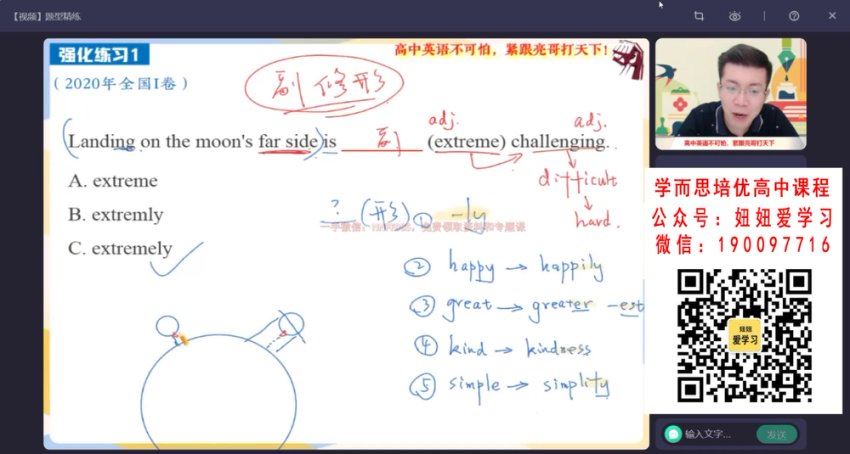 【视频】题型精练
强化练习1
高中英语不可怕，紧跟亮哥打天下!
(2020年全国I卷)
副 修 形
adj.
adj.
Landing on the moon's far side is 副 (extreme) challenging.
A. extreme
difficult
B. extremly
? (形) ① -ly
hard.
C. extremely
② happy → happily
③ great → greater -est
④ kind → kindness
⑤ simple → simplity
高中英语不可怕，紧跟亮哥打天下
学而思培优高中课程
公众号：妞妞爱学习
微信：190097716
妞妞
爱学习
输入文字...
发送